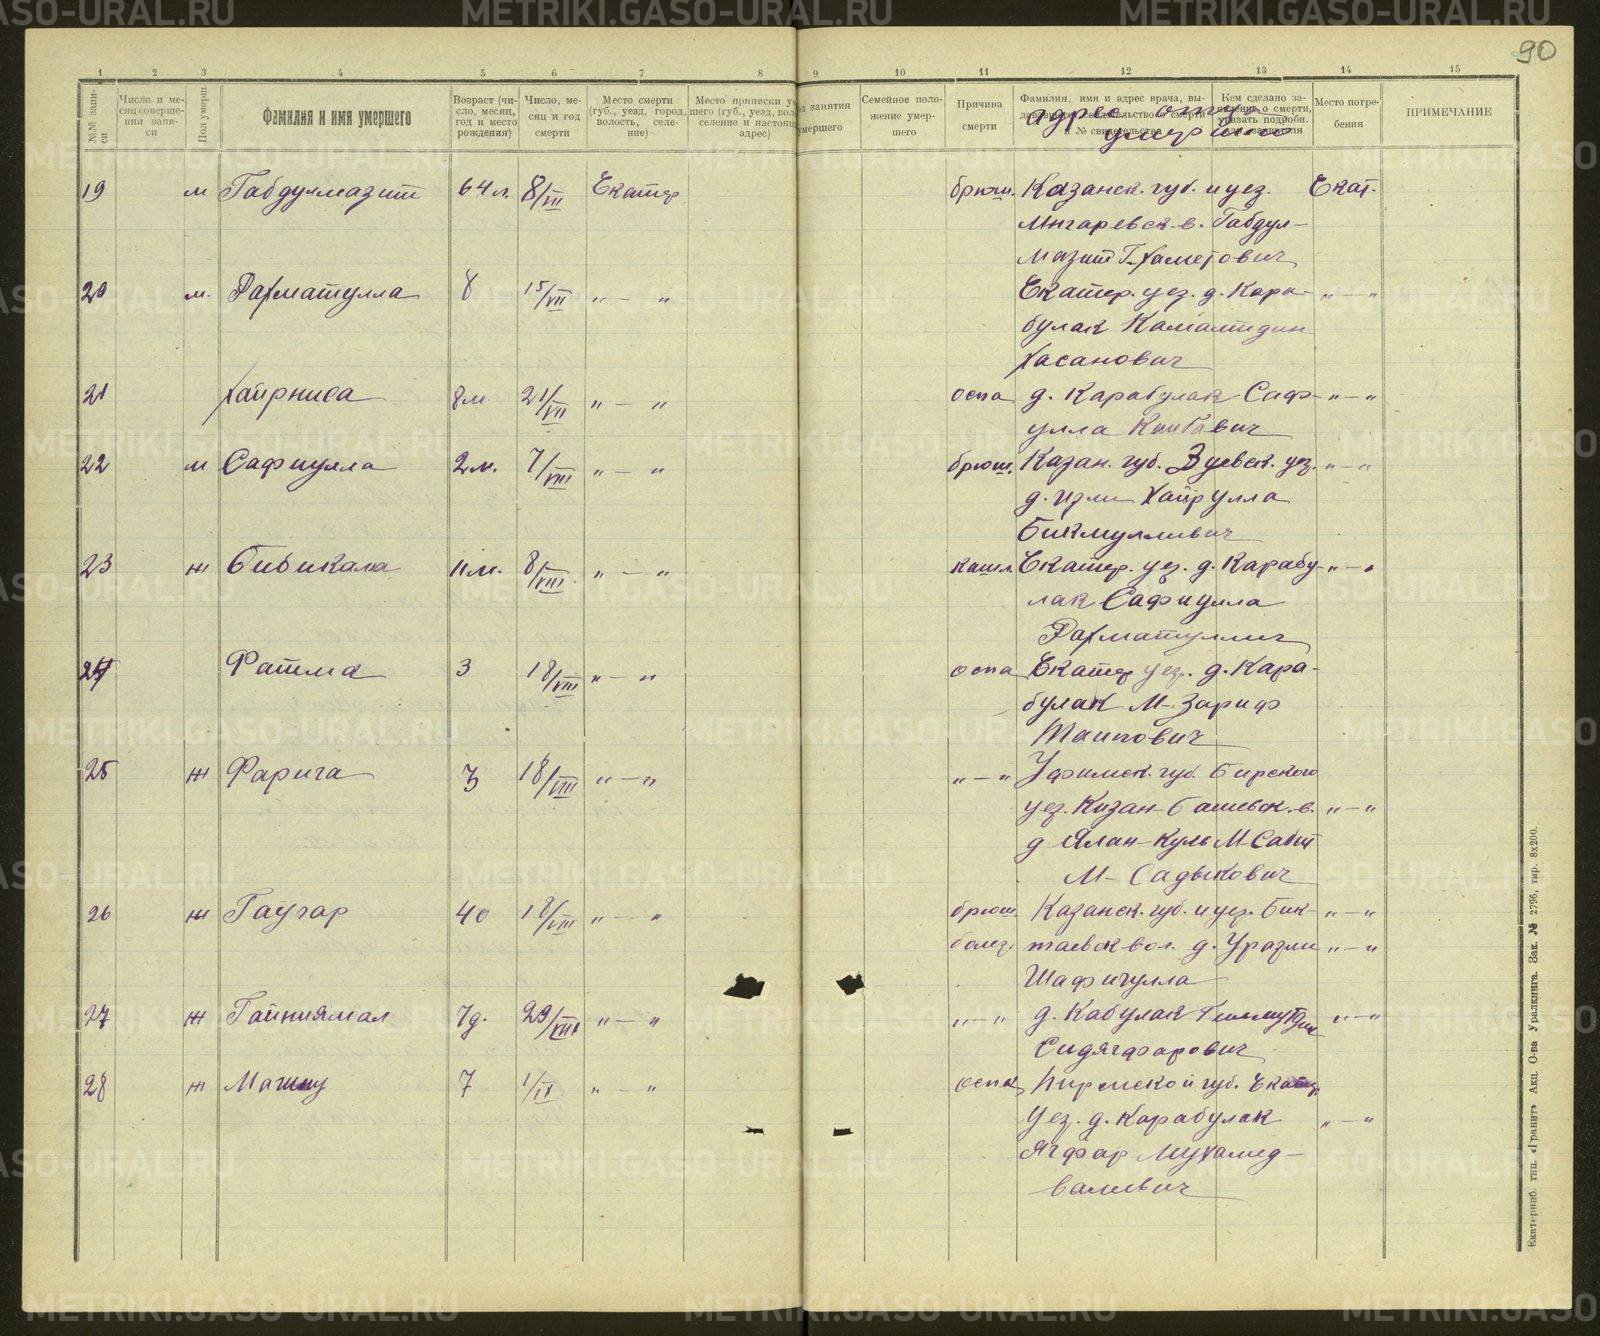 90
1 2 3 4 5 6 7 8 9 10 11 12 13 14 15
№№ записи
Число и месяц совершения записи
Пол умерш.
Фамилия и имя умершего
Возраст (число, месяц, год и место рождения)
Число, месяц и год смерти
Место смерти (губ., уезд, город, волость, селение)
Место приписки умершего (губ., уезд, вол. селение и настоящ. адрес)
занятия умершего
Семейное положение умершего
Причина смерти
Фамилия, имя и адрес врача, выдавшего свидетельство о смерти № свидетельства
Кем сделано заявление о смерти, указать подробн.
адрес отца
умершего
Место погребения
ПРИМЕЧАНИЕ
19 м Габдулмазит 64 л. 8/VII Екатер брюш. Казанск. губ. и уез. Екат.
Мнгаревск в. Габдул-
мазит Г. Хаметович
20 м. Рахматулла 8 15/VII „ — „ Екатер. уез. д. Кара- „ — „
булак Камалтдин
Хасанович
21 Хайрниса 8 м 21/VII „ — „ оспа д. Карабулак Саф- „ — „
улла
22 м Сафиулла 2 м. 7/VIII „ — „ брюш. Казан. губ. уез. „ — „
д. Хайрулла
Бикмуллович
23 ж Бибикамал 11 м. 8/VIII „ — „ кашл. Екатер. уез. д. Карабу- „ — „
лак Сафиулла
Рахматуллич
24 Фатма 3 18/VIII „ — „ оспа Екатер уез. д. Кара-
булак М-Зариф
Таипович
25 ж Фарига 3 18/VIII „ — „ „ — „ Уфимск. губ. Бирского
уез. Казан-башевск. в. „ — „
д Ялан-Куль М-Сабит
М- Садыкович
26 ж Гаугар 40 18/VIII „ — „ брюш. Казанск. губ. и уез. Бик- „ — „
болез. таевск вол. д. Уразли „ — „
Шафигулла
27 ж Гайниямал 7 д. 29/VIII „ — „ „ — „ д. Кабулак „ — „
Сидягфарович
28 ж 7 1/IX „ — „ оспа Пирмской губ. Екатер.
уез. д. Карабулак „ — „
Ягфар Мухамед-
валиевич
Екатеринб. тип. «Гранит» Акц. О-ва Уралкнига. Зак. № 2796, тир. 8х200.
METRIKI.GASO-URAL.RU